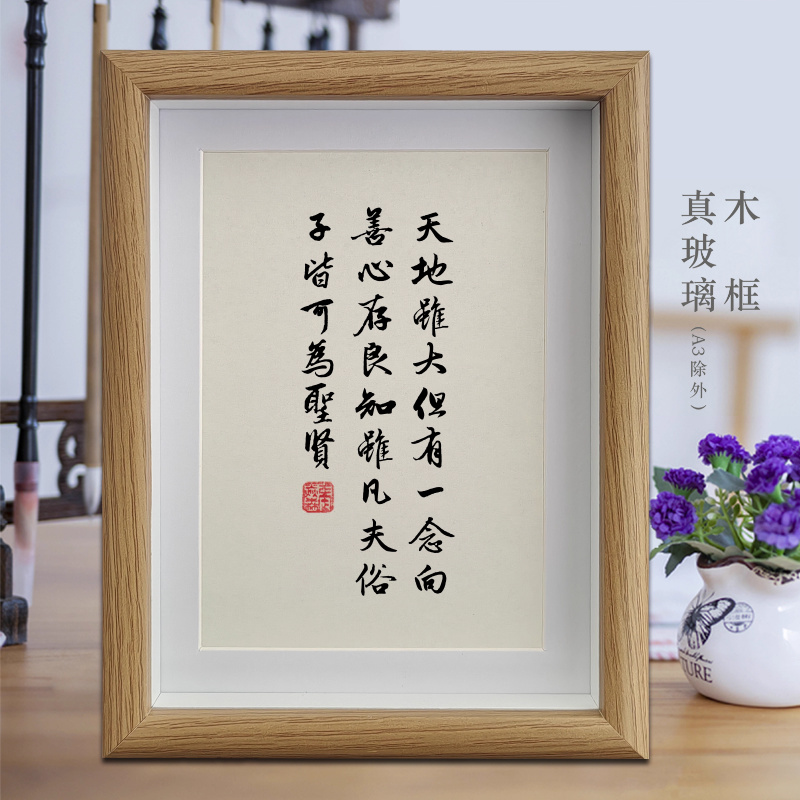 天地雖大但有一念向
善心存良知雖凡夫俗
子皆可為聖賢
木框
真玻璃(A3除外)